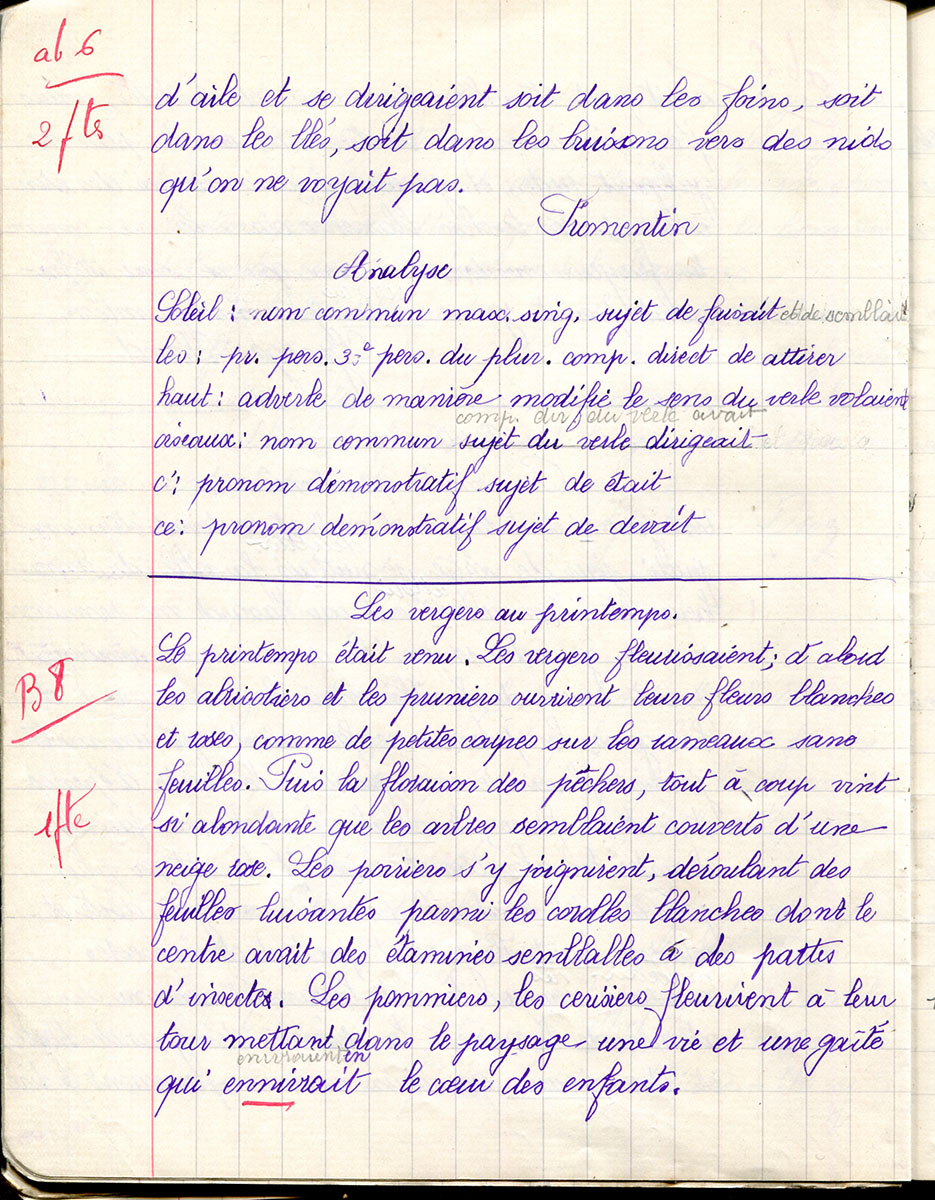 ab 6
2 ftes
d'aile et se dirigeaient soit dans les foins, soit
dans les blés, soit dans les buisons vers des nids
qu'on ne voyait pas.
Fromentin
Analyse
Soleil : nom commun masc. sing. sujet de faisait et de semblait
les : pr. pers. 3e pers. du plur. comp. direct de attirer
haut : adverbe de manière modifie le sens du verbe volaient
comp. dir. du verbe avait
oiseaux : nom commun sujet du verbe dirigeait
c' : pronom démonstratif sujet de était
ce : pronom démonstratif sujet de devait
Les vergers au printemps.
Le printemps était venu. Les vergers fleurissaient ; d'abord
B 8
les abricotiers et les pruniers ouvrirent leurs fleurs blanches
et roses, comme de petites coupes sur les rameaux sans
feuilles. Puis la floraison des pêchers, tout à coup vint
1 fte
si abondante que les arbres semblaient couverts d'une
neige rose. Les poiriers s'y joignirent, déroulant des
feuilles luisantes parmi les corolles blanches dont le
centre avait des étamines semblables à des pattes
d'insectes. Les pommiers, les cerisiers fleurirent à leur
tour mettant dans le paysage une vie et une gaîté
qui ennivrait le cœur des enfants.